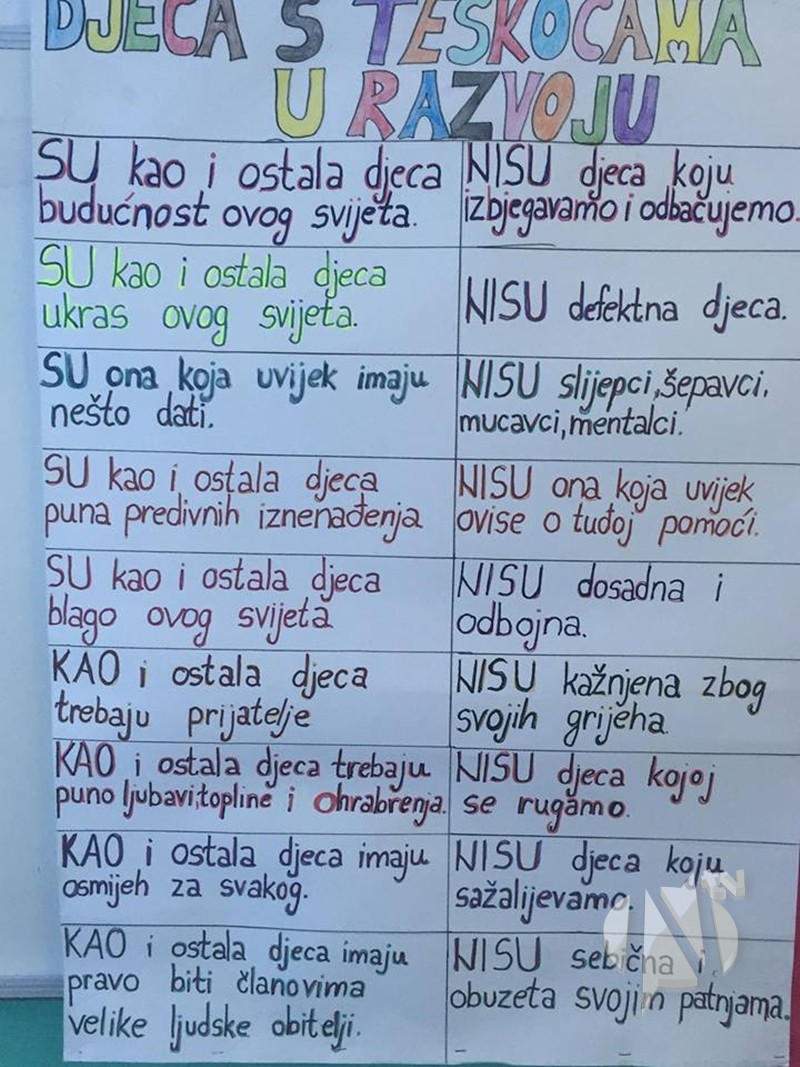 DJECA S TEŠKOĆAMA
U RAZVOJU
SU kao i ostala djeca
budućnost ovog svijeta.
NISU djeca koju
izbjegavamo i odbacujemo.
SU kao i ostala djeca
ukras ovog svijeta.
NISU defektna djeca.
SU ona koja uvijek imaju
nešto dati.
NISU slijepci, šepavci,
mucavci, mentalci.
SU kao i ostala djeca
puna predivnih iznenađenja
NISU ona koja uvijek
ovise o tuđoj pomoći.
SU kao i ostala djeca
blago ovog svijeta
NISU dosadna i
odbojna.
KAO i ostala djeca
trebaju prijatelje
NISU kažnjena zbog
svojih grijeha
KAO i ostala djeca trebaju
puno ljubavi, topline i ohrabrenja.
NISU djeca kojoj
se rugamo.
KAO i ostala djeca imaju
osmijeh za svakog.
NISU djeca koju
sažalijevamo.
KAO i ostala djeca imaju
pravo biti članovima
velike ljudske obitelji.
NISU sebična i
obuzeta svojim patnjama.
tv